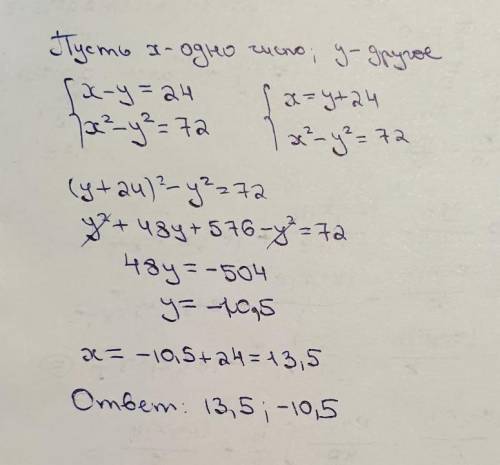 Пусть x - одно число; y - другое
{ x - y = 24
x² - y² = 72
{ x = y + 24
x² - y² = 72
(y + 24)² - y² = 72
y² + 48y + 576 - y² = 72
48y = -504
y = -10,5
x = -10,5 + 24 = 13,5
Ответ: 13,5; -10,5